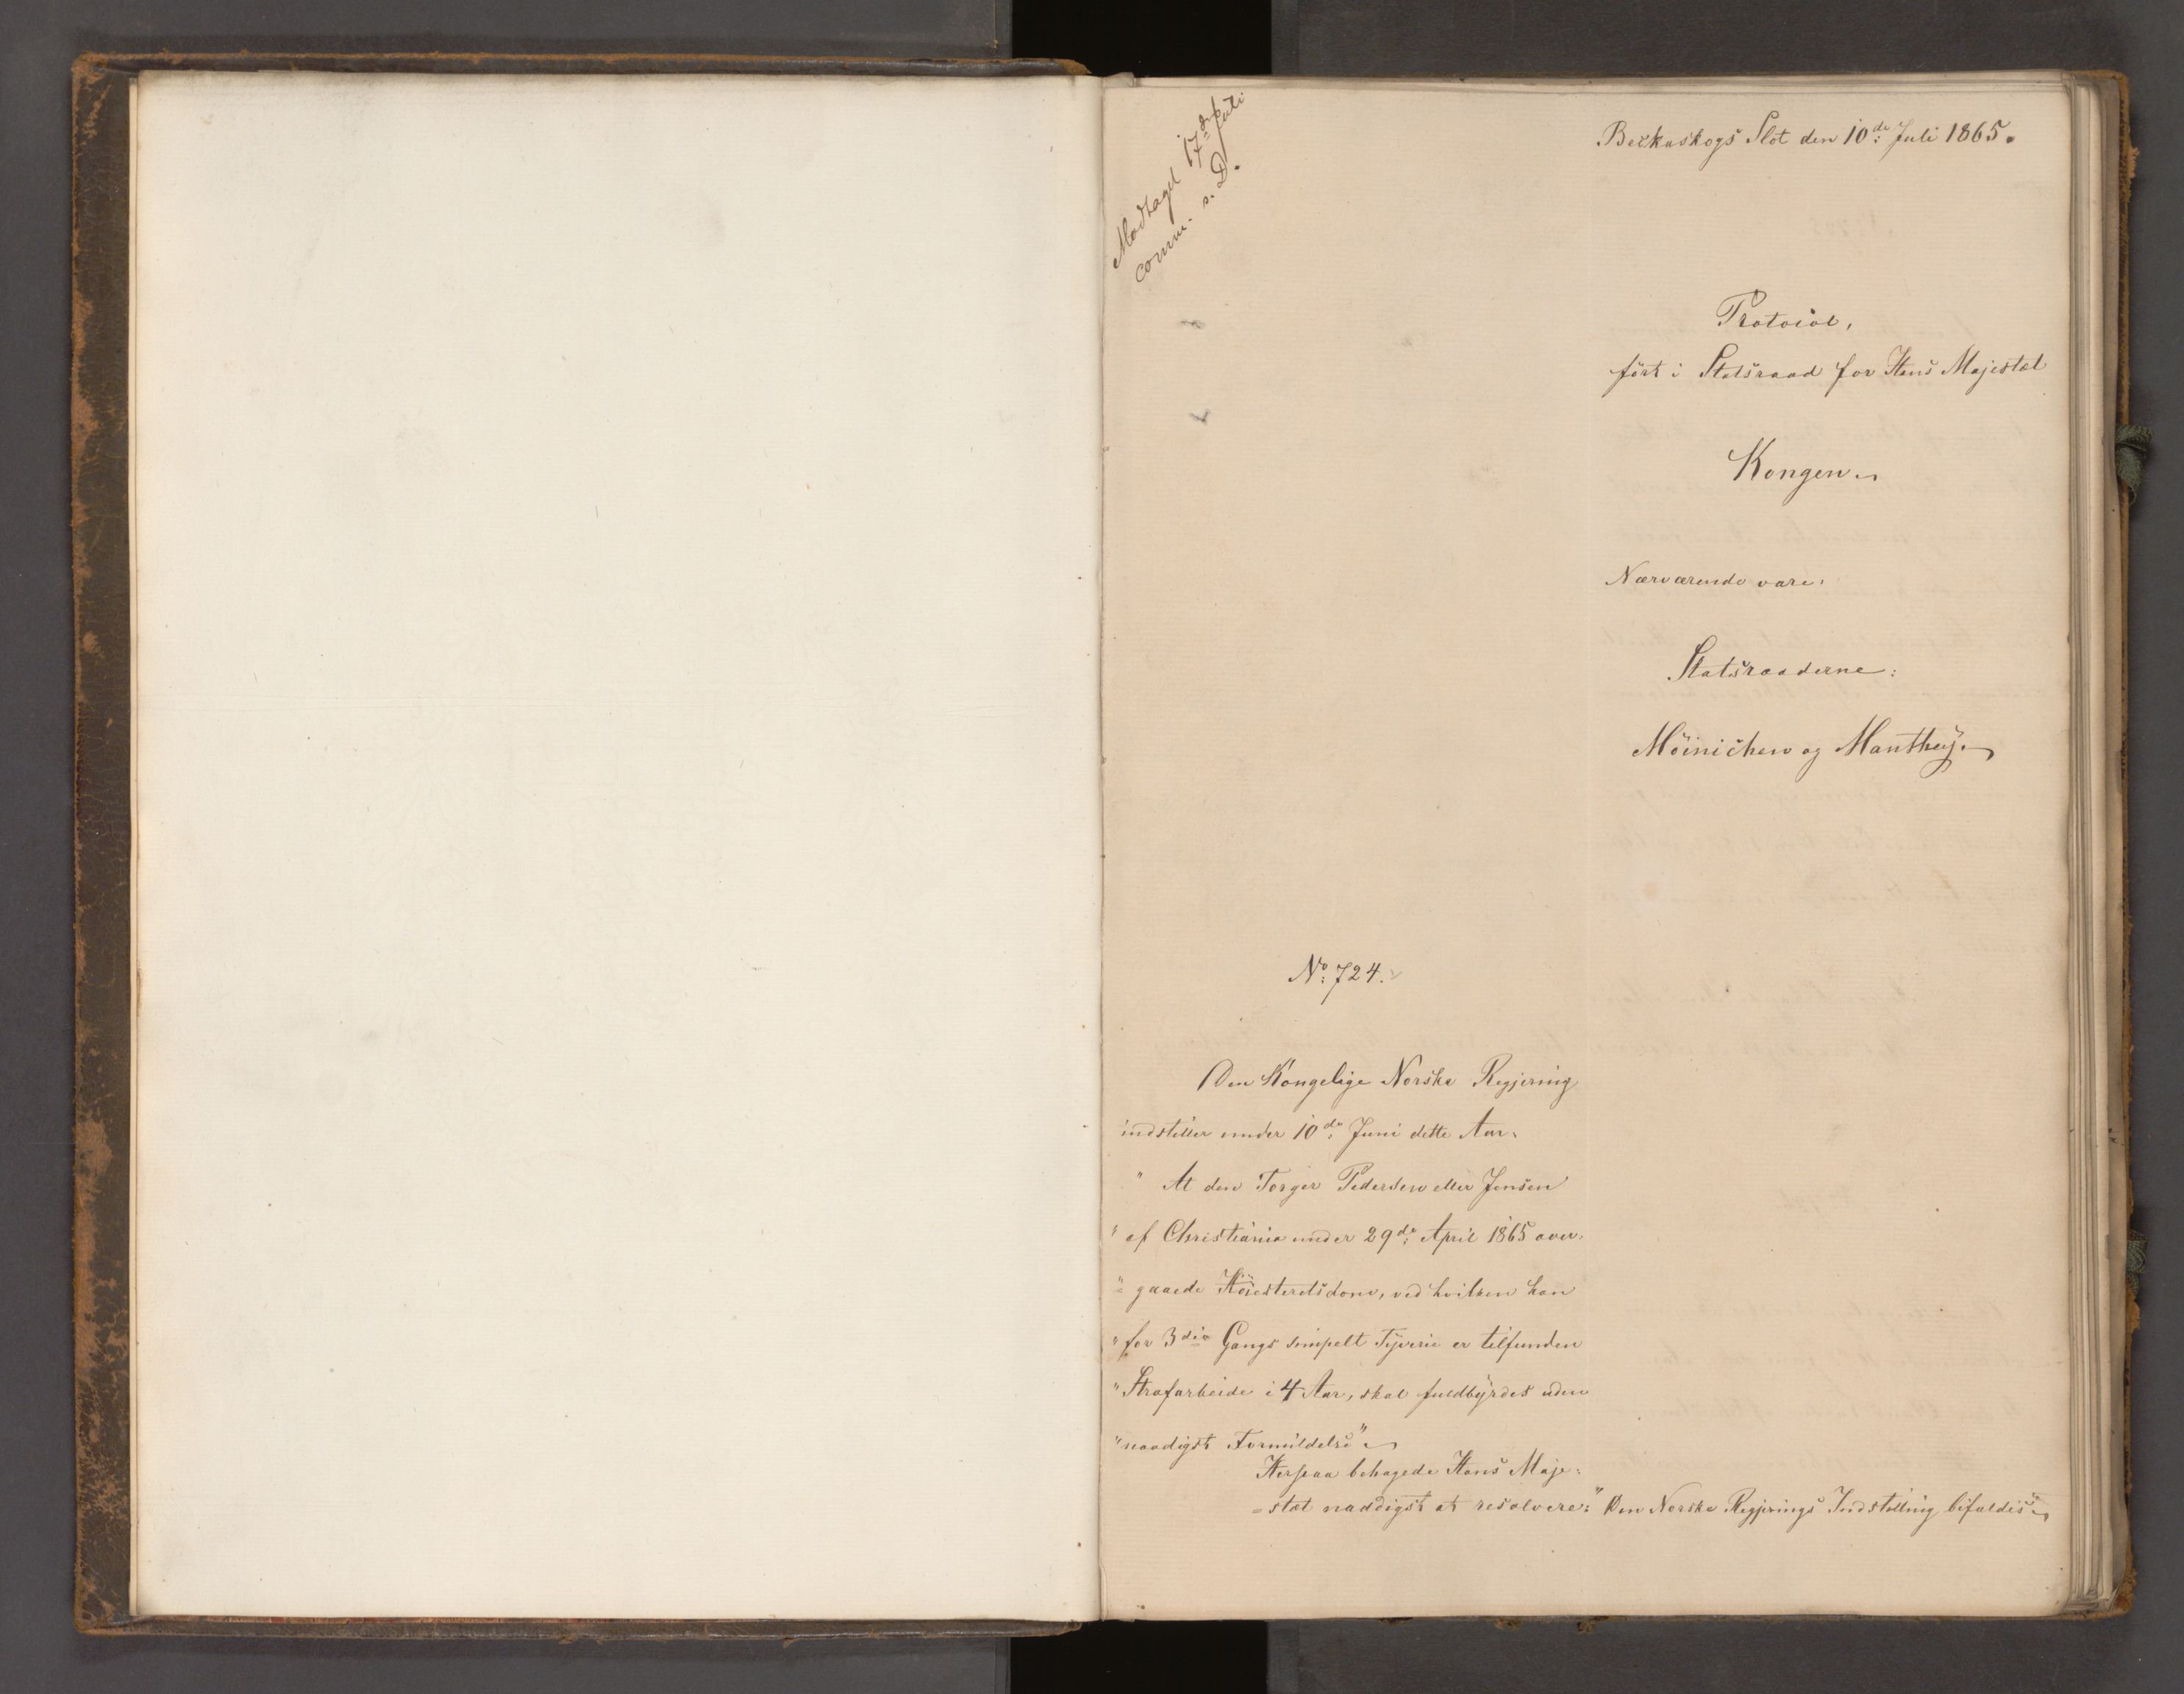 Modtaget 17de Juli
comm. s. D.
Beckaskogs Slot den 10de Juli 1865.
Protocol,
ført i Statsraad for Hans Majestæt
Kongen.
Nærværende vare:
Statsraaderne:
Möinichen og Manthey.
No: 724.
Den Kongelige Norske Regjering
indstiller under 10de Juni dette Aar:
" At den Torger Pedersen eller Jensen
" af Christiania under 29de April 1865 over-
" gaaede Höiesteretsdom, ved hvilken han
" for 3die Gangs simpelt Tyverie er tilfunden
" Strafarbeide i 4 Aar, skal fuldbyrdes uden
" naadigst Formildelse"
Herpaa behagede Hans Maje:
=stæt naadigst at resolvere: "Den Norske Regjerings Indstilling bifaldes"